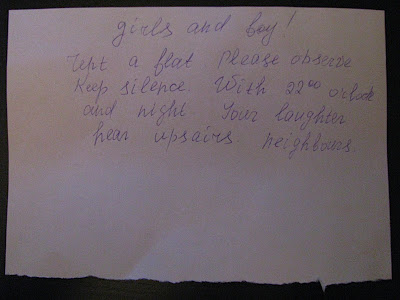 girls and boy!
a flat Please observe
Keep silence. With 22⁰⁰ o'clock
and night Your laughter
hear upsairs neighbours.